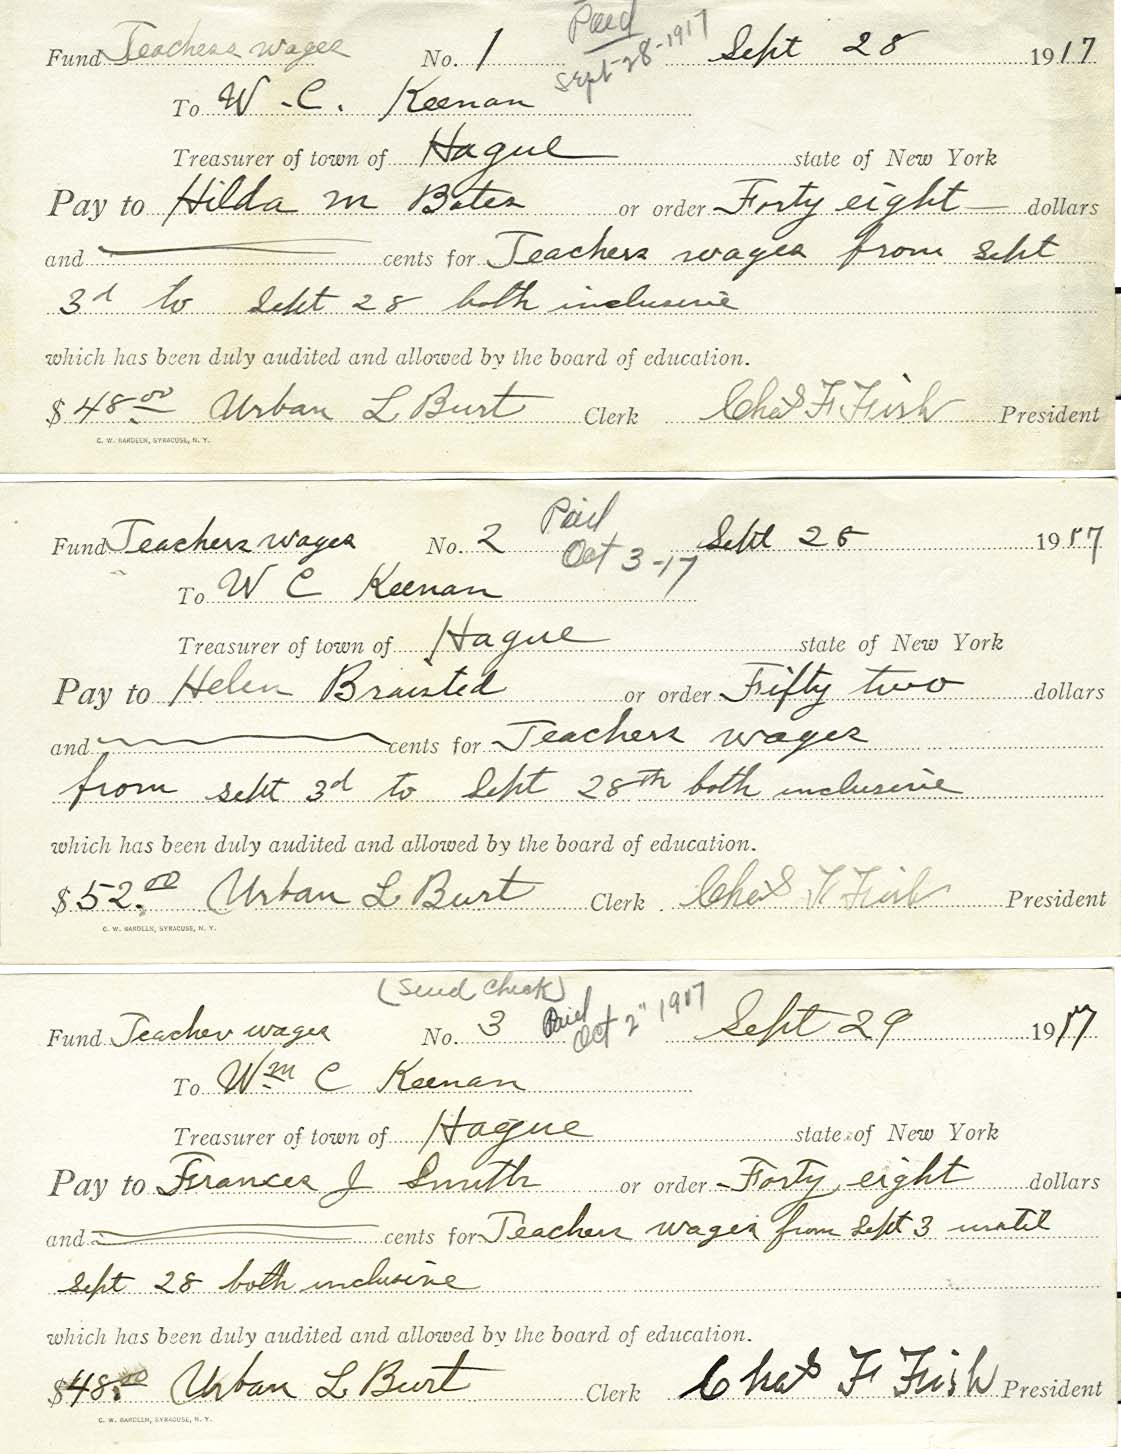 Paid
Sept-28-1917
Fund Teachers wages No. 1 Sept 28 1917
To W.C. Keenan
Treasurer of town of Hague state of New York
Pay to Hilda M Bates or order Forty eight dollars
and cents for Teachers wages from Sept
3d to Sept 28 both inclusive
which has been duly audited and allowed by the board of education.
$48.00 Urban L Burt Clerk Chas F Fish President
C. W. BARDEEN, SYRACUSE, N. Y.
Paid
Oct 3-17
Fund Teachers wages No. 2 Sept 28 1917
To W C Keenan
Treasurer of town of Hague state of New York
Pay to Helen Braisted or order Fifty two dollars
and cents for Teachers wages
from Sept 3d to Sept 28th both inclusive
which has been duly audited and allowed by the board of education.
$52.00 Urban L Burt Clerk Chas F Fish President
C. W. BARDEEN, SYRACUSE, N. Y.
(Send Check)
Paid
Oct 2" 1917
Fund Teacher wages No. 3 Sept 29 1917
To Wm C Keenan
Treasurer of town of Hague state of New York
Pay to Frances J Smith or order Forty eight dollars
and cents for Teachers wages from Sept 3 until
Sept 28 both inclusive
which has been duly audited and allowed by the board of education.
$48.00 Urban L Burt Clerk Chas F Fish President
C. W. BARDEEN, SYRACUSE, N. Y.